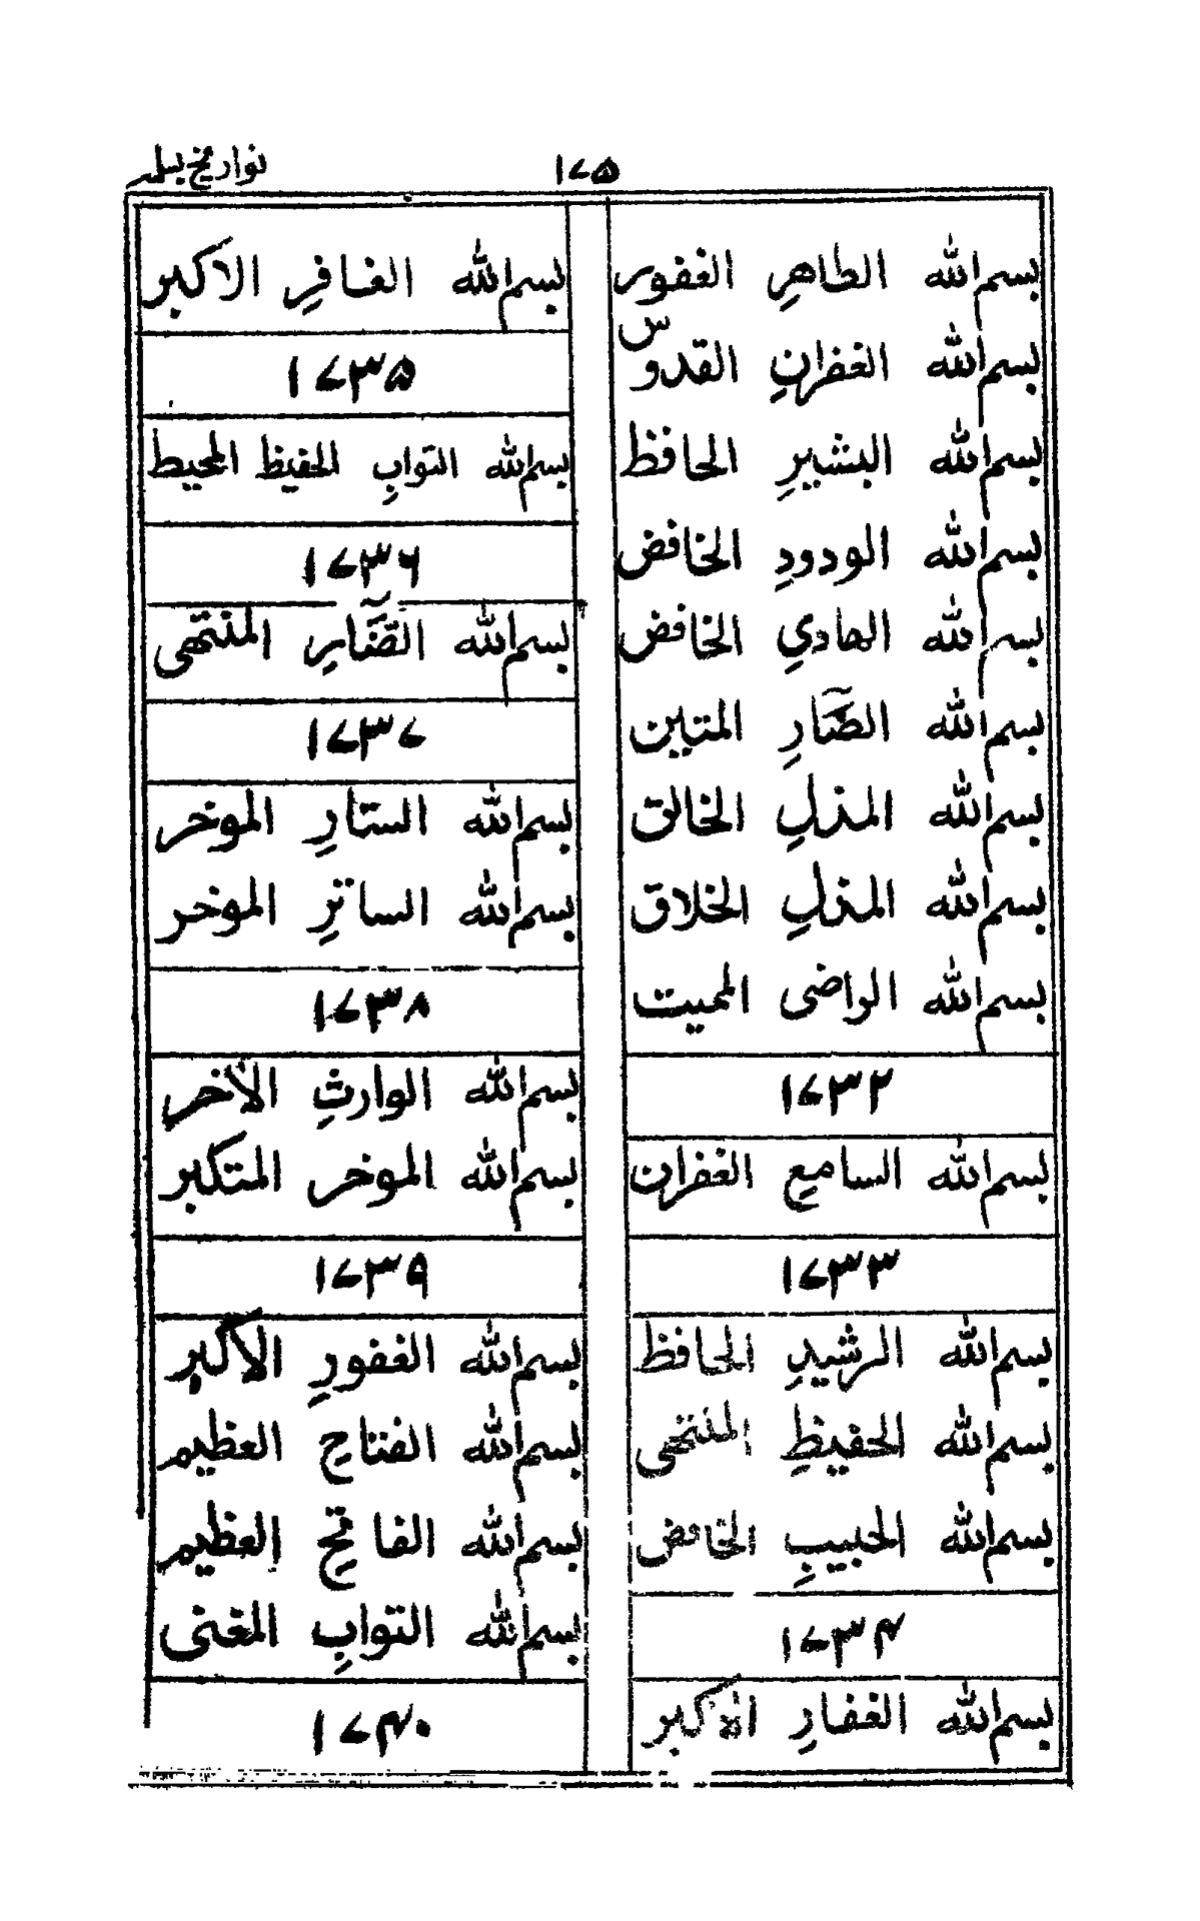 ۱۷۵
تواریخ بسلمہ
بسم الله الطاهرِ الغفور
بسم الله الغفرانِ القدوس
بسم الله البشيرِ الحافظ
بسم الله الودودِ الخافض
بسم الله الهاديِ الخافض
بسم الله الضَّآرِ المتين
بسم الله المنزلِ الخالق
بسم الله المنزلِ الخلاق
بسم الله الراضى المميت
۱۷۳۲
بسم الله السامع الغفران
۱۷۳۳
بسم الله الرشيدِ الحافظ
بسم الله الحفيظِ المنتهى
بسم الله الحبيبِ الخافض
۱۷۳۴
بسم الله الغفارِ الاكبر
بسم الله الغافرِ الاكبر
۱۷۳۵
بسم الله التوابِ الحفيظ المحيط
۱۷۳۶
بسم الله الضَّآرِ المنتهى
۱۷۳۷
بسم الله الستارِ الموخر
بسم الله الساترِ الموخر
۱۷۳۸
بسم الله الوارثِ الأخر
بسم الله الموخر المتكبر
۱۷۳۹
بسم الله الغفورِ الاكبر
بسم الله الفتاح العظيم
بسم الله الفاتح العظيم
بسم الله التوابِ المغنى
۱۷۴۰